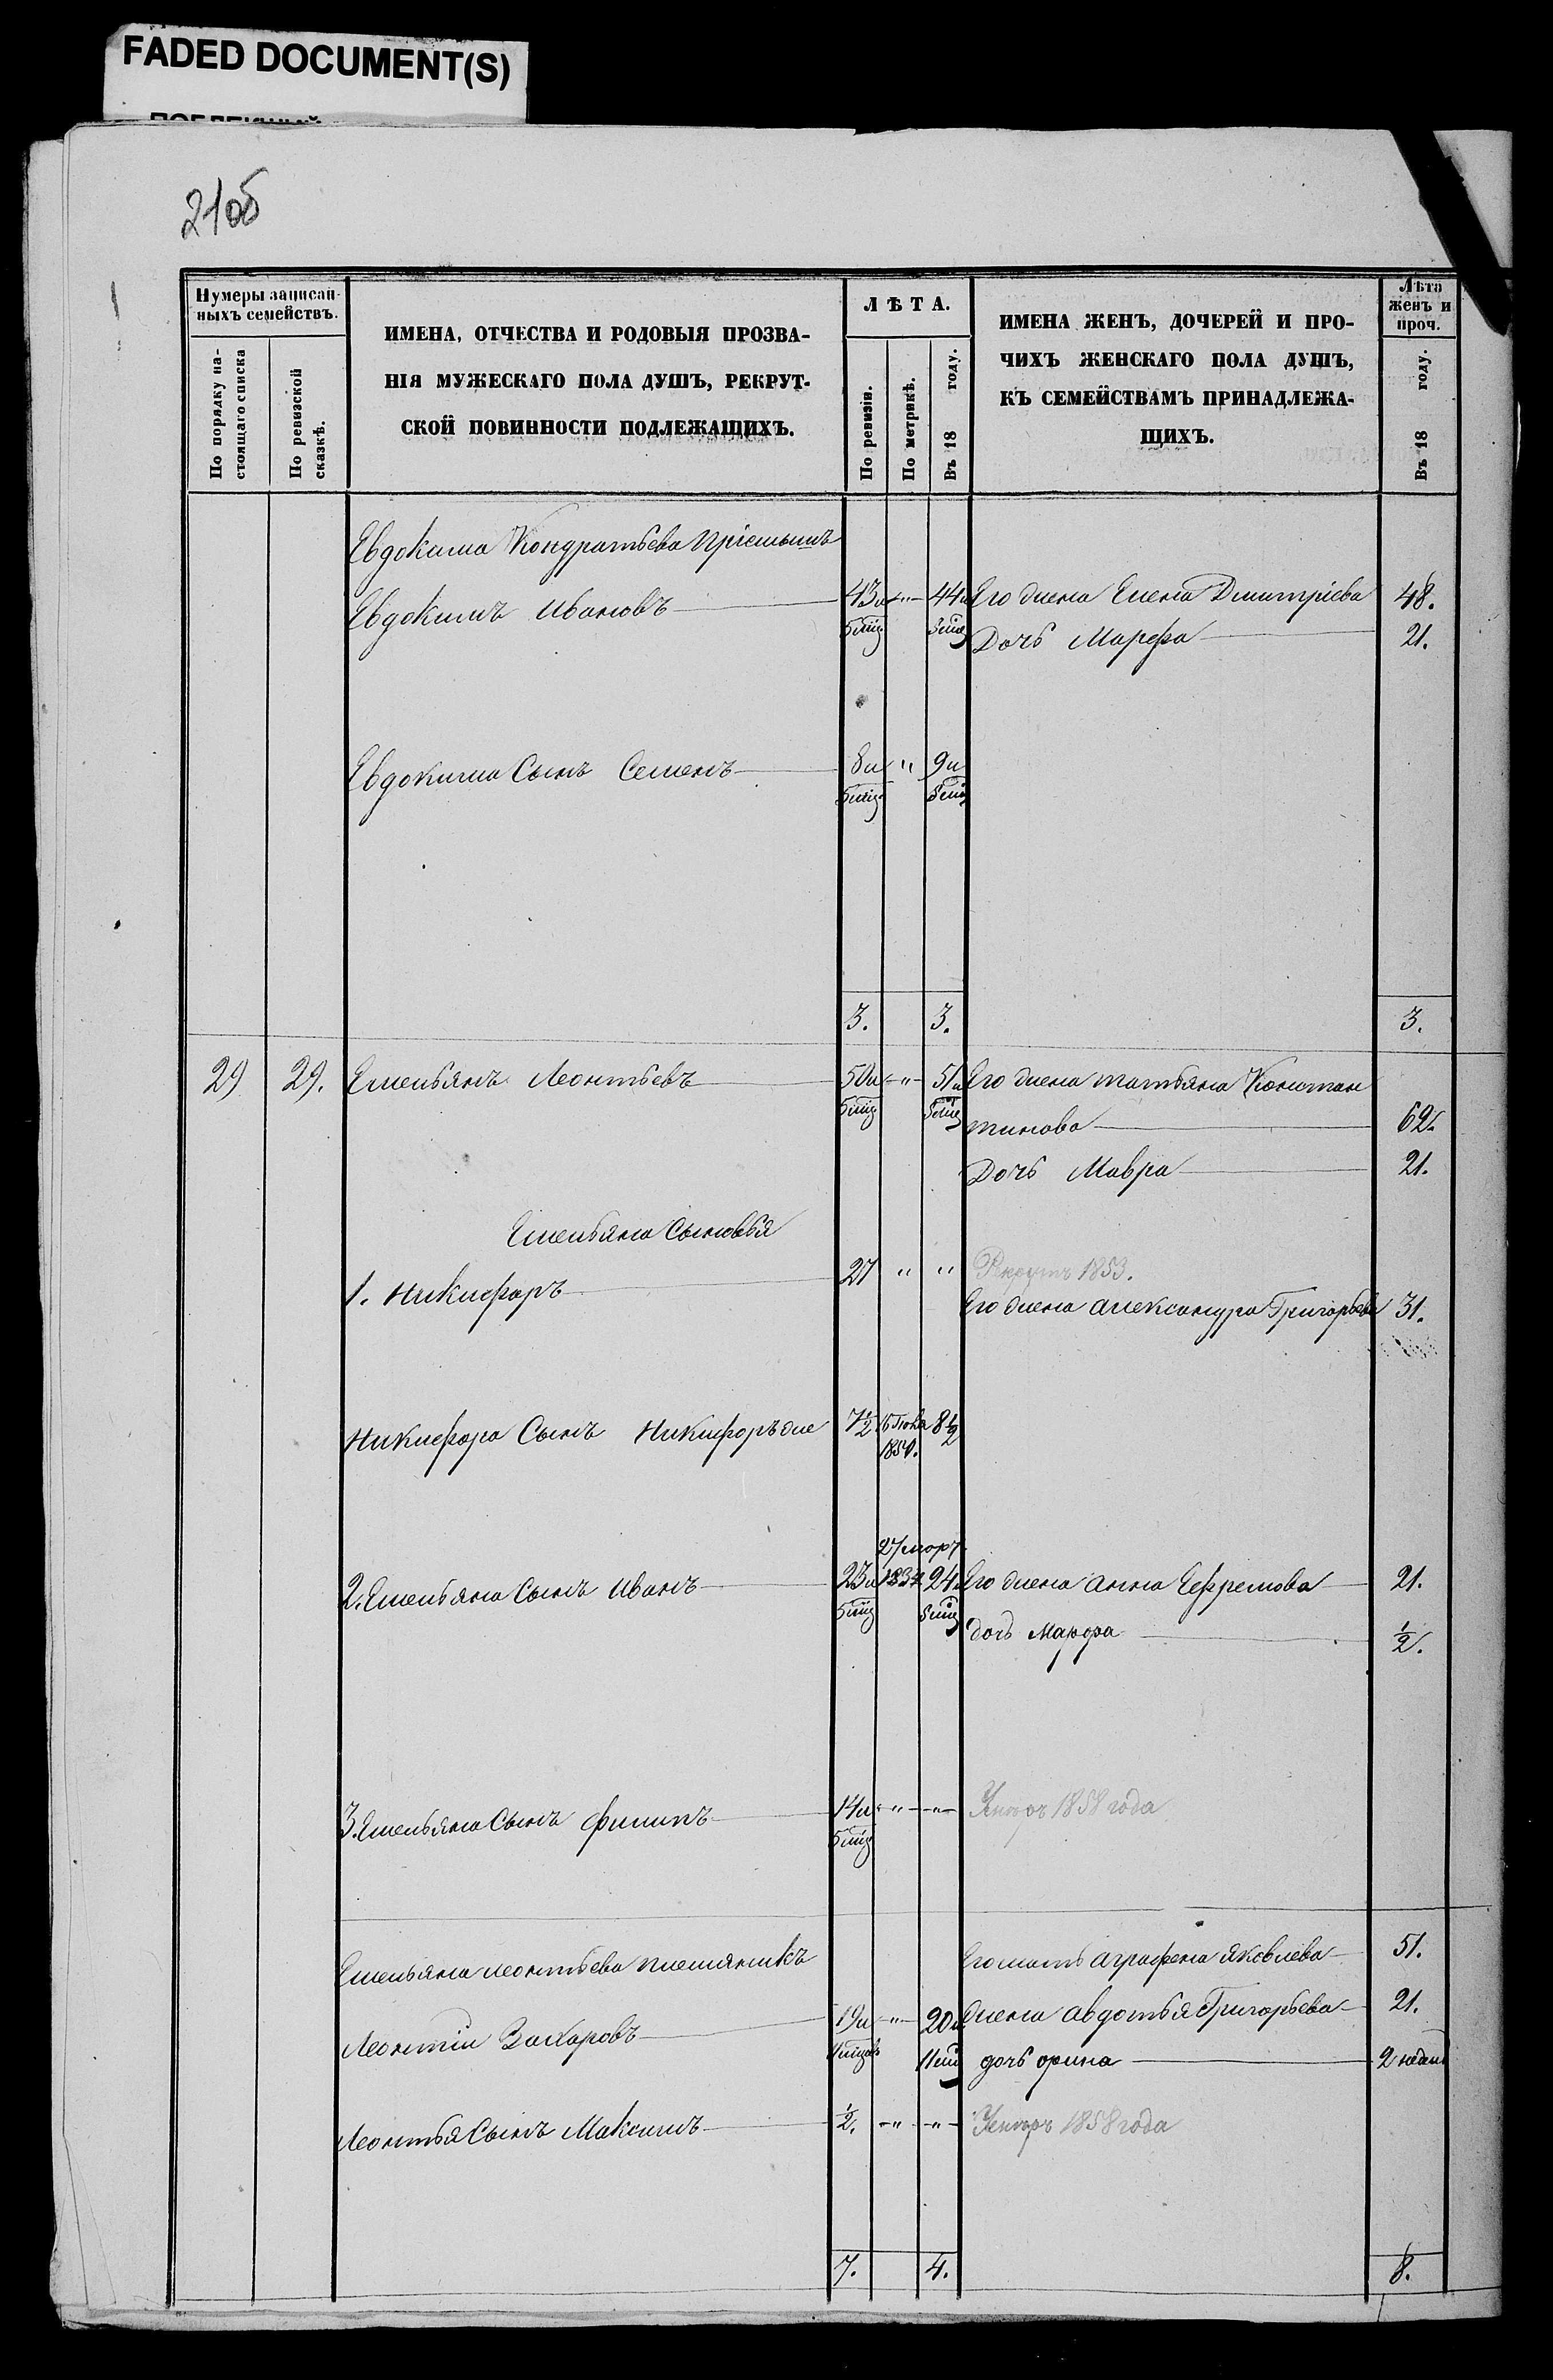 FADED DOCUMENT(S)
21об
Нумеры записан-
ныхъ семействъ.
По порядку на-
стоящаго списка
По ревизской
сказкѣ.
ИМЕНА, ОТЧЕСТВА И РОДОВЫЯ ПРОЗВА-
НІЯ МУЖЕСКАГО ПОЛА ДУШЪ, РЕКРУТ-
СКОЙ ПОВИННОСТИ ПОДЛЕЖАЩИХЪ.
ЛѢТА.
По ревизіи.
По метрикѣ.
Въ 18 году.
ИМЕНА ЖЕНЪ, ДОЧЕРЕЙ И ПРО-
ЧИХЪ ЖЕНСКАГО ПОЛА ДУШЪ,
КЪ СЕМЕЙСТВАМЪ ПРИНАДЛЕЖА-
ЩИХЪ.
Лѣта
женъ и
проч.
Въ 18 году.
Евдокима Кондратьева Пріемышъ
Евдокимъ Ивановъ 43 и " 44 и Его жена Елена Дмитріева 48.
5 мѣц 5 мѣц Дочь Марфа 21.
Евдокима Сынъ Семенъ 8 и " 9 и
5 мѣц 5 мѣц
3. 3. 3.
29 29. Емельянъ Леонтьевъ 50 и " 51 и Его жена татьяна Констан
5 мѣц 5 мѣц тинова 62.
Дочь Мавра 21.
Емельяна Сыновья
1. Никифоръ 27 " " Рекрутъ 1853.
Его жена александра Григорьева 31.
Никифора Сынъ Никифоръ же 7½ 8½
1850.
27 март
2. Емельяна Сынъ Иванъ 23 и 1834 24 и Его жена анна Ефремова 21.
5 мѣц 5 мѣц дочь Марфа ½.
3. Емельяна Сынъ филипъ 14 и " " Умеръ 1858 года
5 мѣц
Емельяна леонтьева племянникъ Его мать аграфена яковлева 51.
Леонтіи Захаровъ 19 и " 20 и жена авдотья Григорьева 21.
11 мѣц 11 мѣц дочь орина 2 недел
Леонтья Сынъ Максимъ ½. " " Умеръ 1858 года
7. 4. 8.